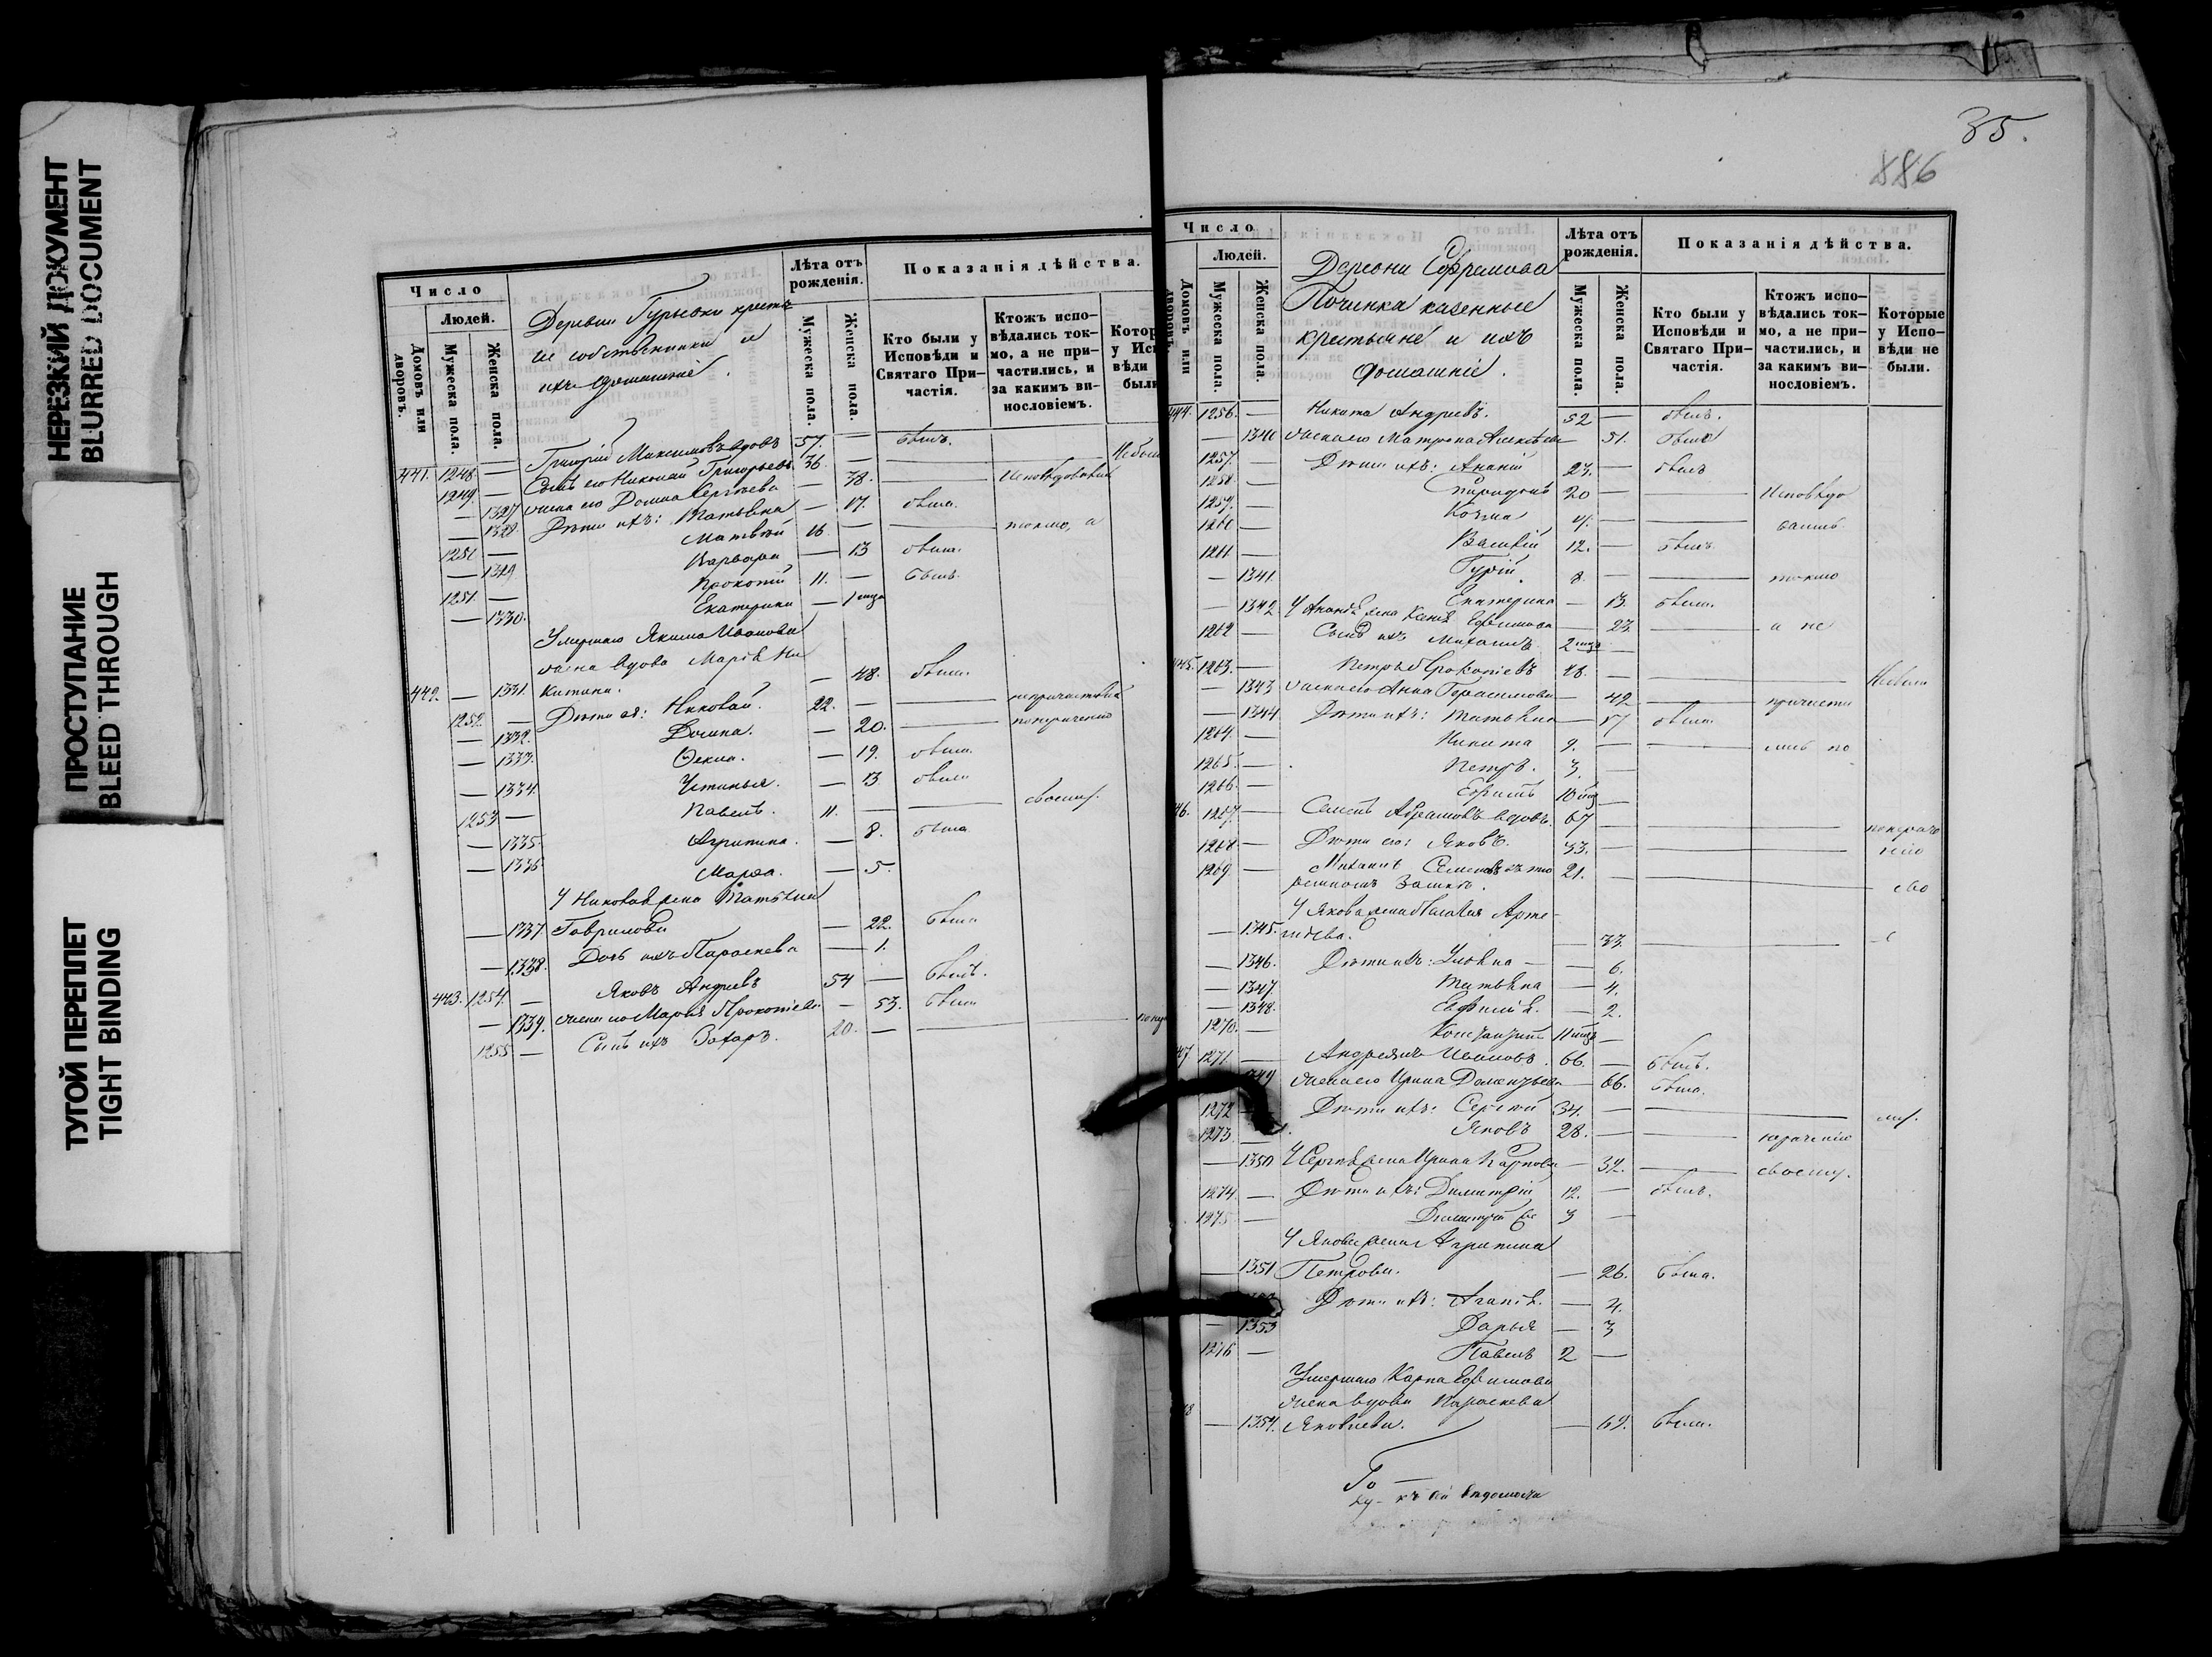 НЕРЕЗКИЙ ДОКУМЕНТ
BLURRED DOCUMENT
ПРОСТУПАНИЕ
BLEED THROUGH
ТУГОЙ ПЕРЕПЛЕТ
TIGHT BINDING
Число
Людей.
Домовъ или дворовъ.
Мужеска пола.
Женска пола.
Деревни Гурьевки крестья
не собственники и
ихъ домашніе.
Лѣта отъ рожденія.
Мужеска пола.
Женска пола.
Показанія дѣйства.
Кто были у Исповѣди и Святаго Причастія.
Ктожъ исповѣдались токмо, а не причастились, и за какимъ винословіемъ.
Котор
у Ис
вѣди
были
441. 1248. — Григорій Максимовъ вдовъ 57. — былъ.
1249. — Сынъ его Николай Григорьевъ 36. — —
— 1327 жена его Домна Сергѣева — 38. —
— 1328 Дѣти ихъ: Татьяна — 17. была.
1250 — Матвѣй 16 — — токмо, а
— 1329 Варвара — 13 была.
1251. — Прокопій 11. — былъ.
— 1330. Екатерина — 1
Умершаго Якима Иванова
жена вдова Марія Ни
442. — 1331. китина. — 48. была.
1252 — Дѣти ея: Николай. 22. — —
— 1332. Домна. — 20. —
— 1333. Фекла. — 19. была.
— 1334. Устинья. — 13 была
1253 — Павелъ. 11. — — своему.
— 1335. Агрипина. — 8. была
— 1336 Марѳа. — 5.
У Николая жена Татьяна
— 1337. Гаврилова — 22. была
— 1338. Дочь ихъ Параскева — 1.
443. 1254. — Яковъ Андреевъ 54 — былъ.
— 1339. жена его Марья Прокопіева — 53. была
1255 — Сынъ ихъ Захаръ. 20. — —
35.
886
Число
Людей.
Домовъ или дворовъ.
Мужеска пола.
Женска пола.
Деревни Ефремова
Починка казенные
крестьяне и ихъ
домашніе.
Лѣта отъ рожденія.
Мужеска пола.
Женска пола.
Показанія дѣйства.
Кто были у Исповѣди и Святаго Причастія.
Ктожъ исповѣдались токмо, а не причастились, и за какимъ винословіемъ.
Которые у Исповѣди не были.
444. 1256. — Никита Андреевъ. 52 — былъ.
— 1340 жена его Матрона Алексѣева — 51. была
1257. — Дѣти ихъ: Ананій 23. — былъ
1258. — Спиридонъ 20 — — Исповѣдо
1259. — Козма
1260 — Василій 12. — былъ
1261. — Гурій 8. — — токмо
— 1341. Екатерина — 13. была.
— 1342. У Ананія жена Ксенія Ефимова — 23. — а не
1262 — Сынъ ихъ Михаилъ 2
445. 1263. — Петръ Прокопіевъ 48. — —
— 1343 жена его Анна Герасимова — 42 — причасти
— 1344 Дѣти ихъ: Татьяна — 17 была
1264. — Никита 9. — — лись по
1265. — Петръ. 3. —
1266. — Ефимъ 10 —
46. 1267. — Семенъ Абрамовъ вдовъ. 67 — —
1268. — Дѣти его: Яковъ. 33. — —
1269 — Михаилъ 21. — — сво
У Якова жена Пелагея Арте-
— 1345. — 33. —
— 1346. Дѣти ихъ: Ульяна — — 6.
— 1347 Татьяна — 4.
— 1348. Евфимія. — 2.
1270. — 11 —
47 1271 — Ивановъ. 66. — былъ.
1349 жена его Ирина — 66. была.
1272 — Дѣти ихъ: Сергѣй 34. — — му.
1273. — Яковъ 28. — —
— 1350 У Сергѣя жена Ирина Карпова — 32. — своему.
1274. — Дѣти ихъ: Димитрій 12. — былъ.
1275 — Димитрій 3 —
У Якова жена Агрипина
— 1351 Петрова. — 26. была.
Дѣти ихъ: — 4.
— 1353 Дарья — 3
1276 — Павелъ 2 —
Умершаго Карпа Ефимова
жена вдова Параскева
48 — 1354. Яковлева. — 62. была.